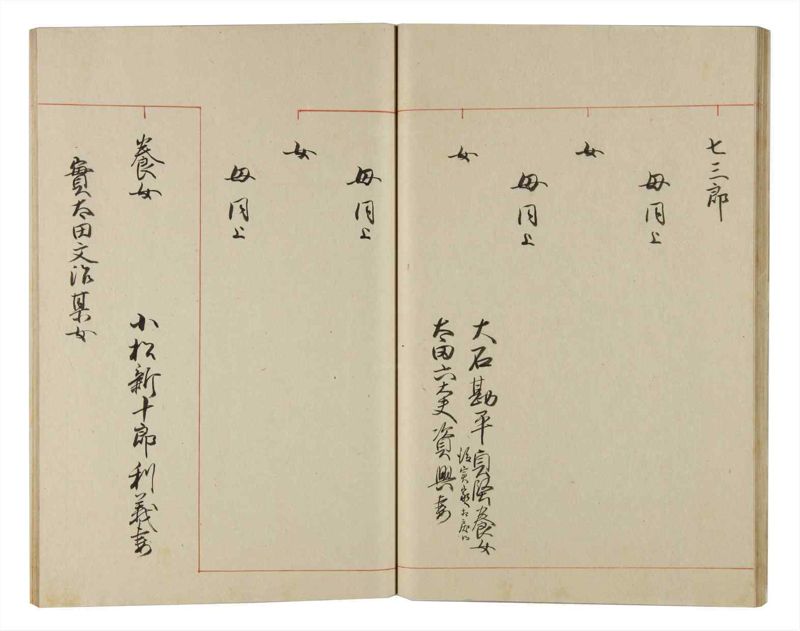 七三郎
母同上
女
母同上
女
大石勘平良降養女
太田六大夫資興妻
母同上
女
母同上
養女
小松新十郎利義妻
實太田文治某女